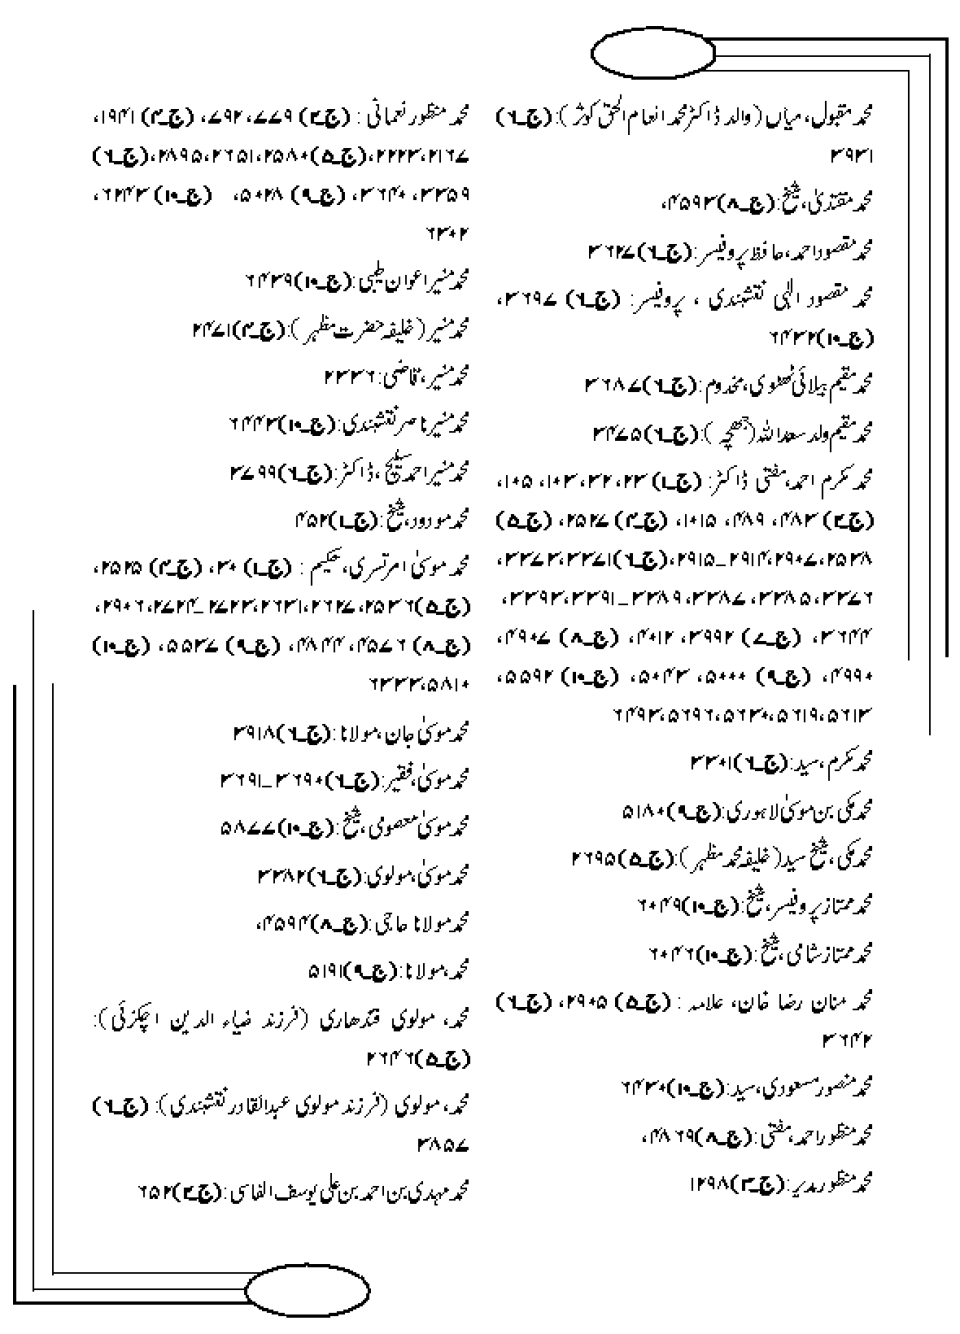 محمد مقبول، میاں (والد ڈاکٹر محمد انعام الحق کوثر): (ج۔۶)
۳۹۳۱
محمد مقتدیٰ، شیخ: (ج۔۸) ۴۵۹۳،
محمد مقصود احمد، حافظ پروفیسر: (ج۔۶) ۳۶۲۷
محمد مقصود الٰہی نقشبندی، پروفیسر: (ج۔۶) ۳۶۹۷،
(ج۔۱۰) ۶۴۳۲
محمد مقیم بیلائی ٹھٹوی، مخدوم: (ج۔۶) ۳۶۸۷
محمد مقیم ولد سعد اللہ (جھچہ): (ج۔۶) ۳۴۷۵
محمد مکرم احمد، مفتی ڈاکٹر: (ج۔۱) ۲۳، ۳۲، ۱۰۳، ۱۰۵،
(ج۔۲) ۴۸۳، ۴۸۹، ۱۰۱۵، (ج۔۴) ۲۵۲۷، (ج۔۵)
۲۵۳۸، ۲۹۰۷، ۲۹۱۴۔۲۹۱۵، (ج۔۶) ۳۳۷۱، ۳۳۷۳،
۳۳۷۶، ۳۳۸۵، ۳۳۸۷، ۳۳۸۹۔۳۳۹۱، ۳۳۹۳،
۳۶۴۴، (ج۔۷) ۳۹۹۲، ۴۰۱۲، (ج۔۸) ۴۹۰۷،
۴۹۹۰، (ج۔۹) ۵۰۰۰، ۵۰۴۳، (ج۔۱۰) ۵۵۹۲،
۵۶۱۳، ۵۶۱۹، ۵۶۳۰، ۵۶۹۶، ۶۴۹۳
محمد مکرم، سید: (ج۔۶) ۳۳۰۱
محمد مکی بن موسیٰ لاہوری: (ج۔۹) ۵۱۸۰
محمد مکی، شیخ سید (خلیفہ محمد مظہر): (ج۔۵) ۲۶۹۵
محمد ممتاز پروفیسر، شیخ: (ج۔۱۰) ۶۰۴۹
محمد ممتاز شامی، شیخ: (ج۔۱۰) ۶۰۴۶
محمد منان رضا خان، علامہ: (ج۔۵) ۲۹۰۵، (ج۔۶)
۳۶۴۲
محمد منصور مسعودی، سید: (ج۔۱۰) ۶۴۳۰
محمد منظور احمد، مفتی: (ج۔۸) ۴۸۶۹،
محمد منظور مدیر: (ج۔۳) ۱۲۹۸
محمد منظور نعمانی: (ج۔۲) ۷۷۹، ۷۹۲، (ج۔۴) ۱۹۴۱،
۲۱۶۷، ۲۲۲۳، (ج۔۵) ۲۵۸۰، ۲۶۵۱، ۲۸۹۵، (ج۔۶)
۳۳۵۹، ۳۶۴۰، (ج۔۹) ۵۰۲۸، (ج۔۱۰) ۶۲۴۳،
۶۳۰۲
محمد منیر اعوان طیبی: (ج۔۱۰) ۶۴۳۹
محمد منیر (خلیفہ حضرت مظہر): (ج۔۴) ۲۴۷۱
محمد منیر، قاضی: ۲۳۳۶
محمد منیر ناصر نقشبندی: (ج۔۱۰) ۶۴۴۳
محمد منیر احمد سلیچ، ڈاکٹر: (ج۔۶) ۳۷۹۹
محمد مودود، شیخ: (ج۔۱) ۴۵۲
محمد موسیٰ امرتسری، حکیم: (ج۔۱) ۳۰، (ج۔۴) ۲۵۲۵،
(ج۔۵) ۲۵۳۶، ۲۶۲۷، ۲۶۳۱، ۲۷۲۳۔۲۷۲۴، ۲۹۰۶،
(ج۔۸) ۴۵۷۶، ۴۸۴۴، (ج۔۹) ۵۵۳۷، (ج۔۱۰)
۵۸۱۰، ۶۳۳۳
محمد موسیٰ جان، مولانا: (ج۔۶) ۳۹۱۸
محمد موسیٰ، فقیر: (ج۔۶) ۳۶۹۰۔۳۶۹۱
محمد موسیٰ معصومی، شیخ: (ج۔۱۰) ۵۸۷۷
محمد موسیٰ، مولوی: (ج۔۶) ۳۳۸۲
محمد مولانا حاجی: (ج۔۸) ۴۵۹۴،
محمد، مولانا: (ج۔۹) ۵۱۹۱
محمد، مولوی قندھاری (فرزند ضیاء الدین اچکزئی):
(ج۔۵) ۲۶۴۶
محمد، مولوی (فرزند مولوی عبدالقادر نقشبندی): (ج۔۶)
۳۸۵۷
محمد مہدی بن احمد بن علی یوسف الفاسی: (ج۔۲) ۶۵۲